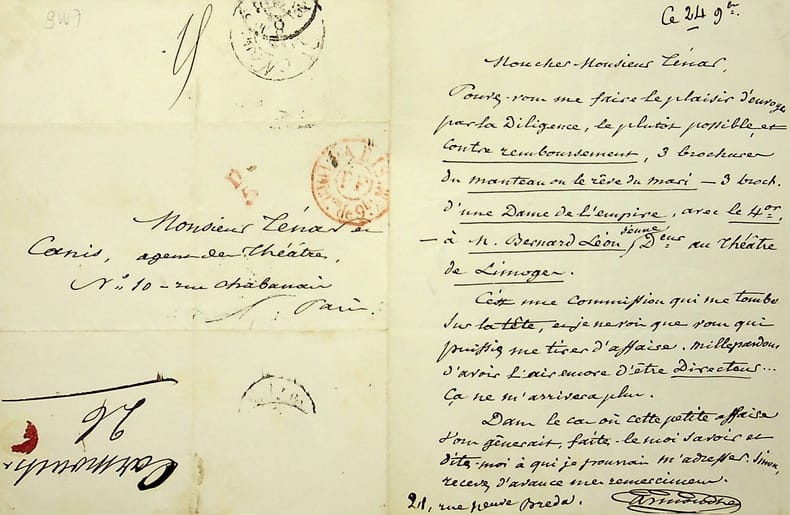 Monsieur Ténar et
Canis, agent de Théâtre,
N.° 10 – rue chabanais
Paris.
D.
5
Carmouche
26
Ce 24 9bre.
Mon cher Monsieur Ténar,
Pouvez-vous me faire le plaisir d'envoyer
par la Diligence, le plutôt possible, et
contre remboursement, 3 brochures
du manteau ou le rêve du mari – 3 broch.
d'une Dame de L'empire, avec le 4or,
– à M. Bernard Léon jeune Dteur au Théâtre
de Limoges.
C'est une Commission qui me tombe
sur la tête, et je ne vois que vous qui
puissiez me tirer d'affaire. mille pardons
d'avoir l'air encore d'être Directeur...
Ça ne m'arrivera plus.
Dans le cas où cette petite affaire
vous gênerait, faites-le moi savoir et
dites-moi à qui je pourrais m'adresser. Sinon,
recevez d'avance mes remerciemens.
21, rue neuve Breda. Carmouche